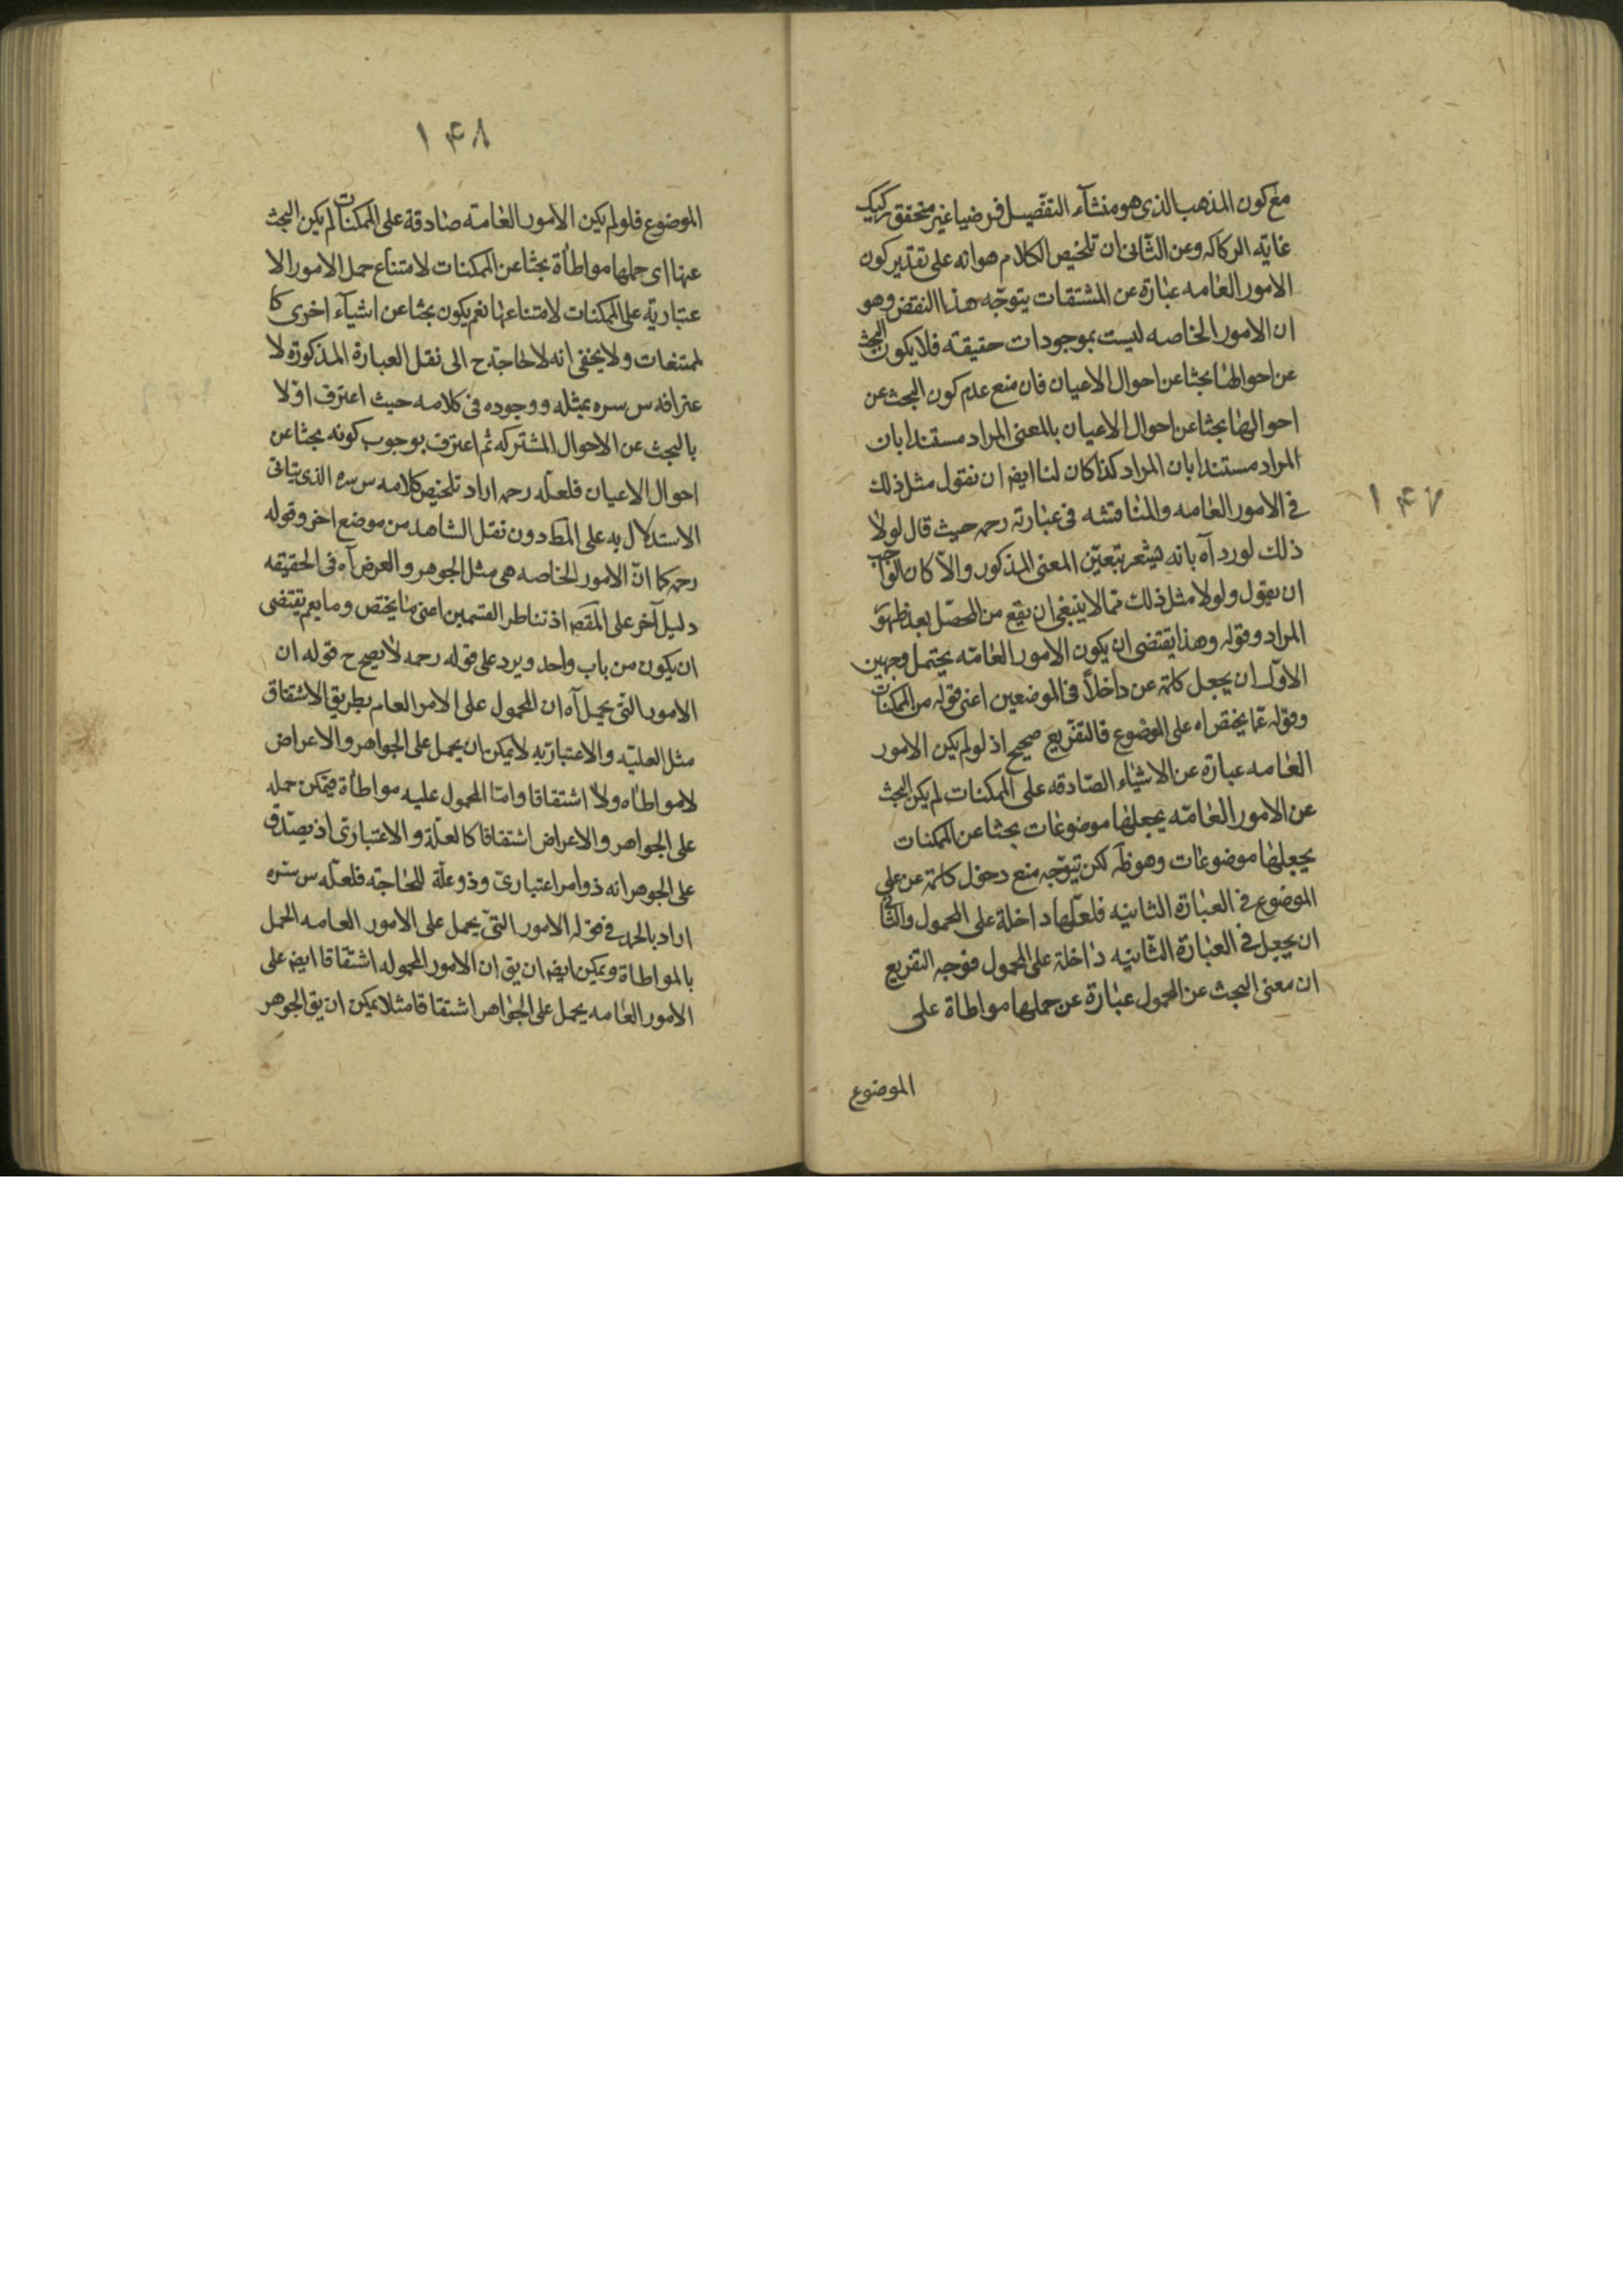 مع كون المذهب الذى هو منشآء التفصيل فرضيا غير متحقق ركيك
غايه الركاكه وعن الثانى ان تلخيص الكلام هو انه على تقدير كون
الامور العامه عبارة عن المشتقات يتوجه هذا النقض وهو
ان الامور الخاصه ليست بموجودات حقيقه فلا يكون البحث
عن احوالها بحثا عن احوال الاعيان فان منع عدم كون البحث عن
احوالها بحثا عن احوال الاعيان بالمعنى المراد مستندا بان
المراد مستندا بان المراد كذا كان لنا ايض ان نقول مثل ذلك
فى الامور العامه والمناقشه فى عبارته رحمه حيث قال لولا
ذلك لورد آه بانه يشعر بتعين المعنى المذكور والا كان الواجب
ان يقول ولولا مثل ذلك مما لا ينبغى ان يقع من المحصل بعد ظهور
المراد وقوله وهذا يقتضى ان يكون الامور العامه يحتمل وجهين
الاول ان يجعل كلمة عن داخلاً فى الموضعين اعنى قوله من الممكنات
وقوله عما يختص اه على الموضوع فالتفريع صحيح اذ لو لم يكن الامور
العامه عبارة عن الاشياء الصادقه على الممكنات لم يكن البحث
عن الامور العامه بجعلها موضوعات بحثا عن الممكنات
بجعلها موضوعات وهو ظه لكن يتوجه منع دخول كلمة عن على
الموضوع فى العبارة الثانيه فلعلها داخلة على المحمول والثانى
ان يجعل فى العبارة الثانيه داخلة على المحمول فوجه التفريع
ان معنى البحث عن المحمول عبارة عن حملها مواطاة على
الموضوع
١٤٧
١٤٨
الموضوع فلو لم يكن الامور العامه صادقة على الممكنات لم يكن البحث
عنها اى حملها مواطأة بحثا عن الممكنات لامتناع حمل الامور الا
عتبارية على الممكنات لامتناعها نعم يكون بحثا عن اشيآء اخرى كا
لممتنعات ولا يخفى انه لا حاجة ح الى نقل العبارة المذكورة لا
عترافه س سره بمثله ووجوده فى كلامه حيث اعترف اولا
بالبحث عن الاحوال المشتركه ثم اعترف بوجوب كونه بحثا عن
احوال الاعيان فلعله رحمه اراد تلخيص كلامه س سره الذى يتاتى
الاستدلال به على المط دون نقل الشاهد من موضع اخر وقوله
رحمه كما ان الامور الخاصه هى مثل الجوهر والعرض آه فى الحقيقه
دليل آخر على المقصد اذ تناظر القسمين اعنى ما يختص وما يعم يقتضى
ان يكون من باب واحد ويرد على قوله رحمه لا يصح ح قوله ان
الامور التى يحمل آه ان المحمول على الامر العام بطريق الاشتقاق
مثل العليه والاعتباريه لا يمكن ان يحمل على الجواهر والاعراض
لا مواطاه ولا اشتقاقا واما المحمول عليه مواطأة فيمكن حمله
على الجواهر والاعراض اشتقاقا كالعلة والاعتبارى اذ يصدق
على الجوهر انه ذو امر اعتبارى وذو علة للحاجة فلعله س سره
اراد بالحمل فى قوله الامور التى يحمل على الامور العامه الحمل
بالمواطاة ويمكن ايض ان يق ان الامور المحموله اشتقاقا ايض على
الامور العامه يحمل على الجواهر اشتقاقا مثلا يمكن ان يق الجوهر